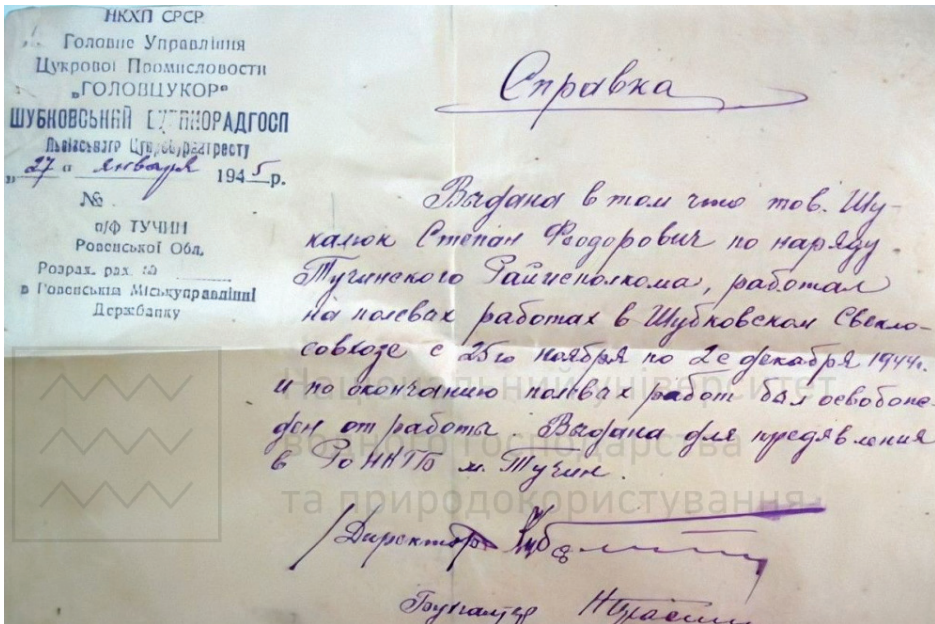 НКХП СРСР
Головне Управління
Цукрової Промисловости
„ГОЛОВЦУКОР"
ШУБКОВСЬКИЙ РАДГОСП
Львівського
„27" января 1945 р.
№
п/ф ТУЧИН
Ровенської Обл.
Розрах. рах. №
в Ровенськім Міськуправлінні
Держбанку
Справка
Выдана в том что тов. Шу-
калюк Степан Феодорович по наряду
Тучинского Райисполкома, работал
на полевах работах в Шубковском Свекло-
совхозе с 25го ноября по 2е декабря 1944г.
и по окончанию полевах работ был освобож-
ден от работы. Выдана для предявления
в м. Тучин.
Директор
Бухгалтер
Національний університет
водного господарства
та природокористування